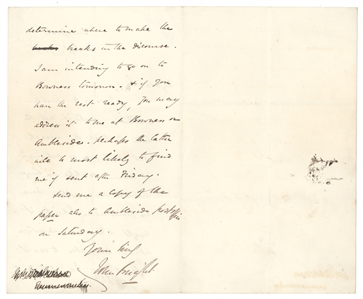 determine where to make the
breaks in the discourse.
I am intending to go on to
Bowness tomorrow. & if you
have the rest ready, you may
address it to me at Bowness or
Ambleside. perhaps the latter
will be most likely to find
me if sent after Friday.
Send me a copy of the
paper also to Ambleside post off
on Saturday.
Yours truly
John Bright